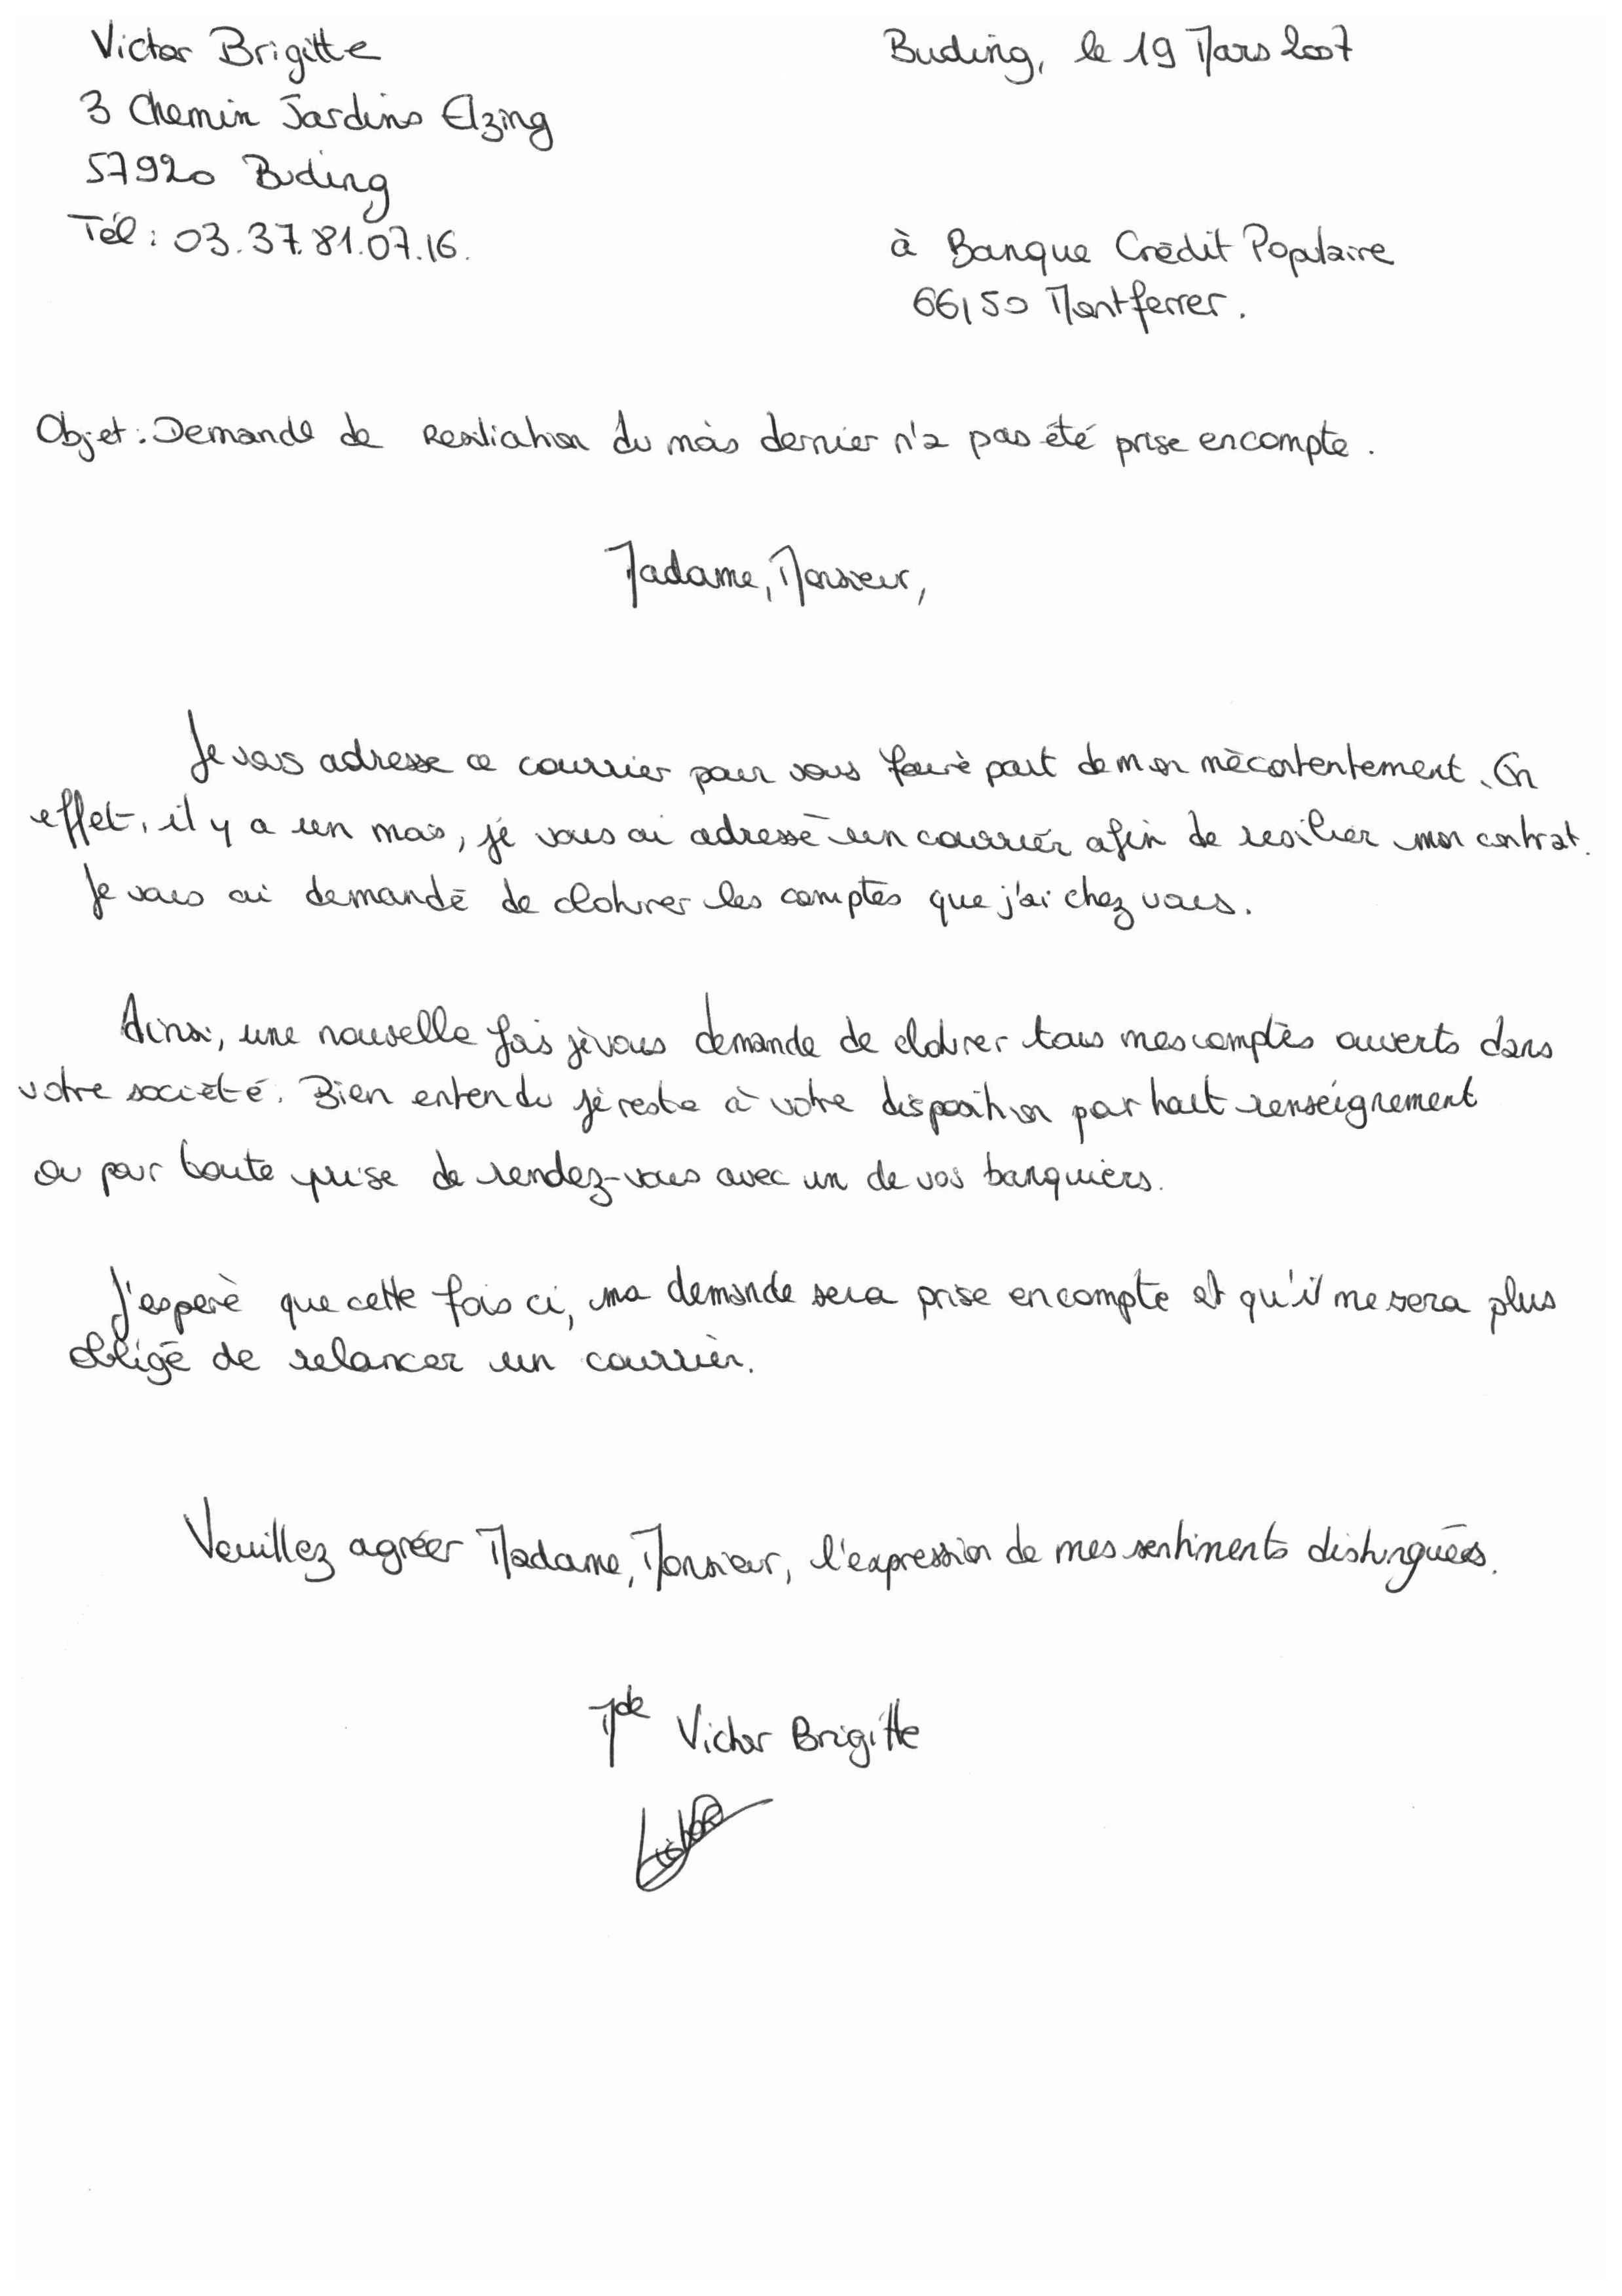 Victor Brigitte
3 Chemin Jardins Elzing
57920 Buding
Tél : 03.37.81.07.16.
Buding, le 19 Mars 2007
à Banque Crédit Populaire
66150 Montferrer.
Objet : Demande de Resiliation du mois dernier n'a pas été prise en compte.
Madame, Monsieur,
Je vous adresse ce courrier pour vous faire part de mon mécontentement. En
effet, il y a un mois, je vous ai adressé un courrier afin de resilier mon contrat.
Je vous ai demandé de cloturer les comptes que j'ai chez vous.
Ainsi, une nouvelle fois je vous demande de cloturer tous mes comptes ouverts dans
votre société. Bien entendu je reste à votre disposition par tout renseignement
ou pour toute prise de rendez-vous avec un de vos banquiers.
J'espere que cette fois ci, ma demande sera prise en compte et qu'il me sera plus
obligé de relancer un courrier.
Veuillez agréer Madame, Monsieur, l'expression de mes sentiments distinguées.
Mde Victor Brigitte